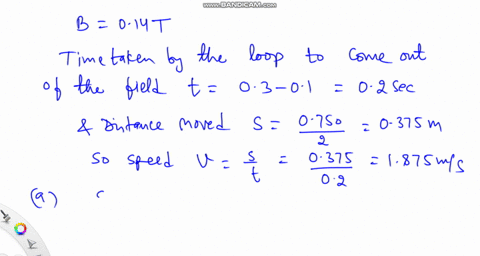 WWW.BANDICAM.COM
B = 0.14 T
Time taken by the loop to come out
of the field t = 0.3 - 0.1 = 0.2 sec
& Distance moved S = 0.750/2 = 0.375 m
So speed V = s/t = 0.375/0.2 = 1.875 m/s
(a)